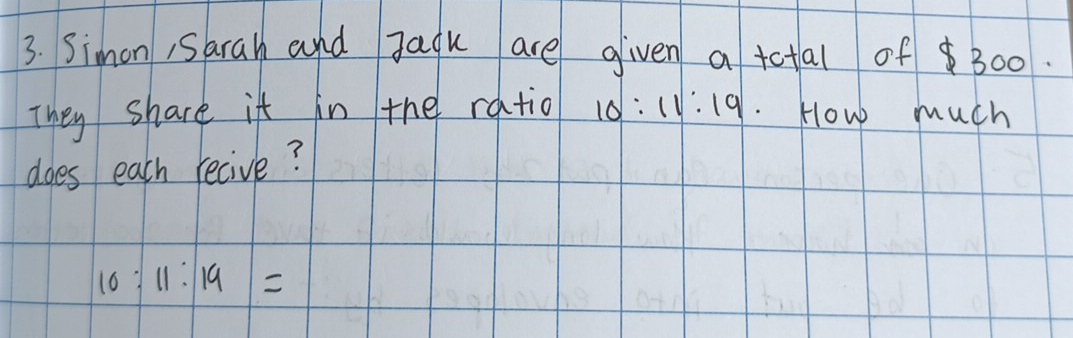 3. Simon, Sarah and Jack are given a total of $300.
They share it in the ratio 10:11:19. How much
does each recive?
10:11:19 =